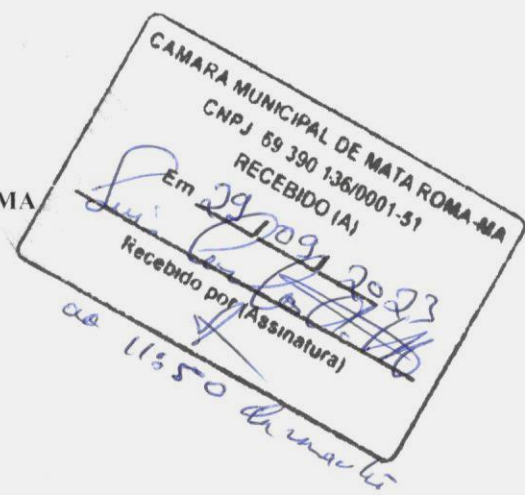 CAMARA MUNICIPAL DE MATA ROMA-MA
CNPJ 69 390 136/0001-51
RECEBIDO (A)
Em 29/09/2023
Recebido por (Assinatura)
as 11:50 da manhã
MA